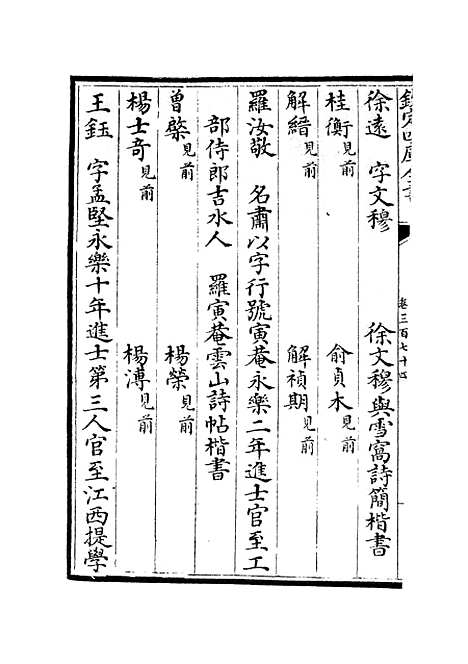 欽定四庫全書 卷三百七十四
徐遠 字文穆 徐文穆與雪窩詩簡楷書
桂衡見前 俞貞木見前
解縉見前 解禎期見前
羅汝敬 名肅以字行號寅菴永樂二年進士官至工
部侍郎吉水人 羅寅菴雲山詩帖楷書
曾棨見前 楊榮見前
楊士奇見前 楊溥見前
王鈺 字孟堅永樂十年進士第三人官至江西提學